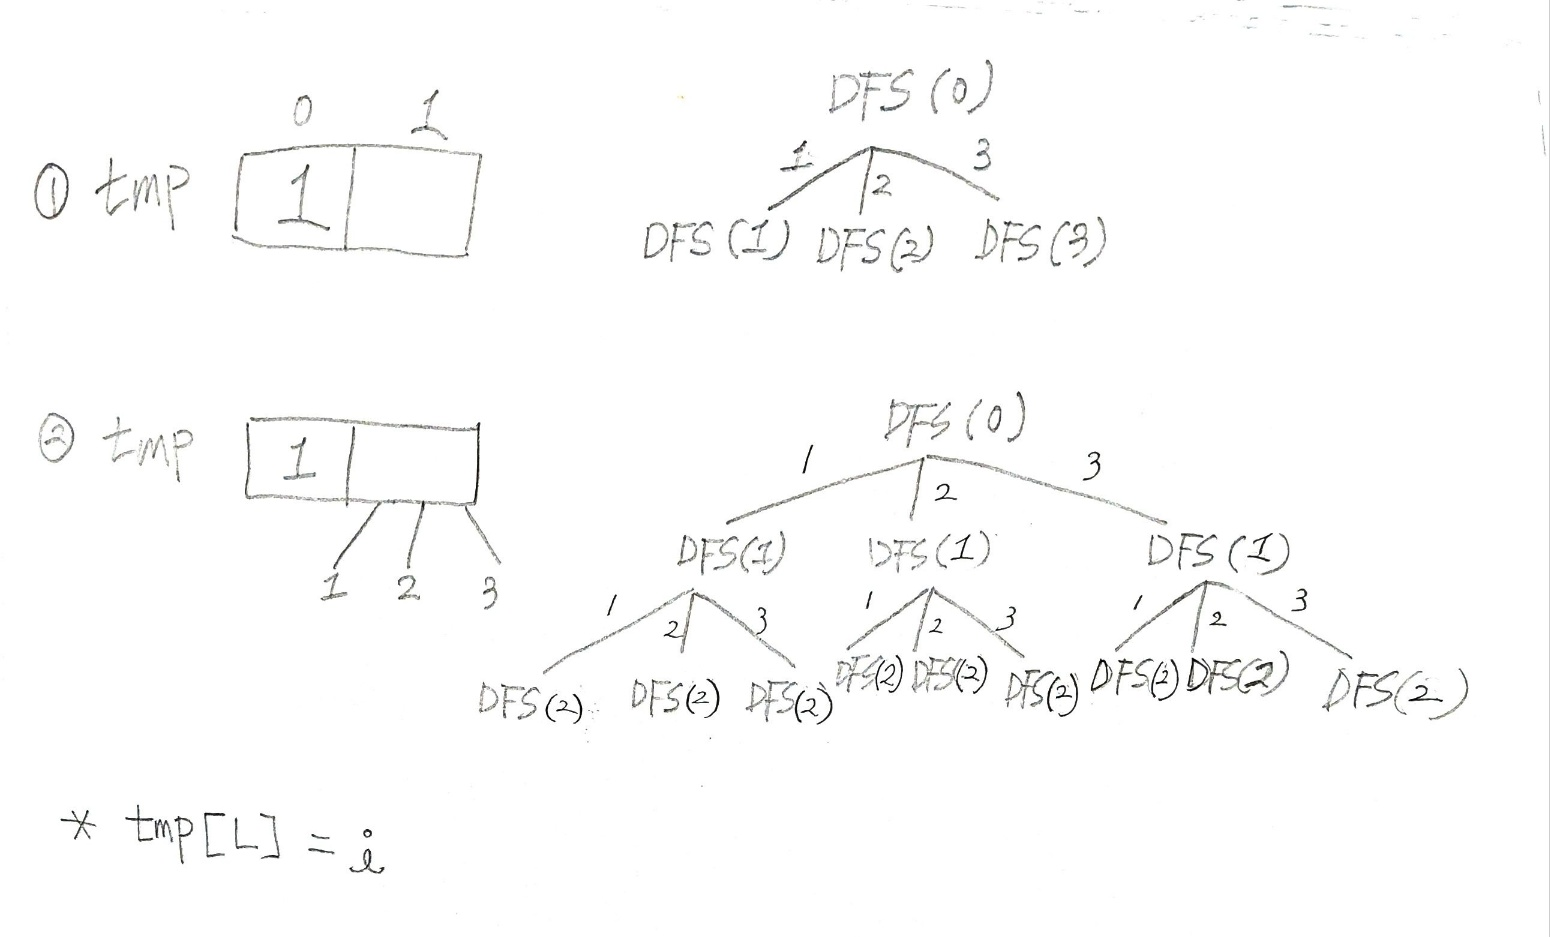 0 1
① tmp 1
DFS (0)
1 2 3
DFS (1) DFS (2) DFS (3)
② tmp 1
1 2 3
DFS (0)
1 2 3
DFS (1) DFS (1) DFS (1)
1 2 3 1 2 3 1 2 3
DFS (2) DFS (2) DFS (2) DFS (2) DFS (2) DFS (2) DFS (2) DFS (2) DFS (2)
* tmp [L] = i